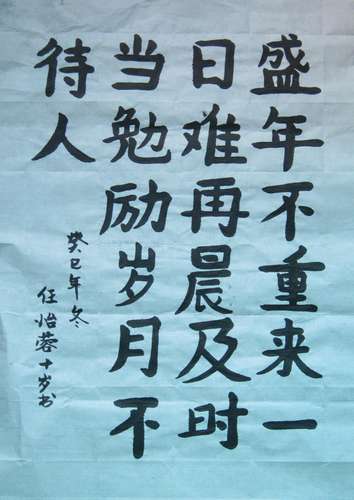 盛年不重来一
日难再晨及时
当勉励岁月不
待人
癸巳年冬
任怡蓉十岁书